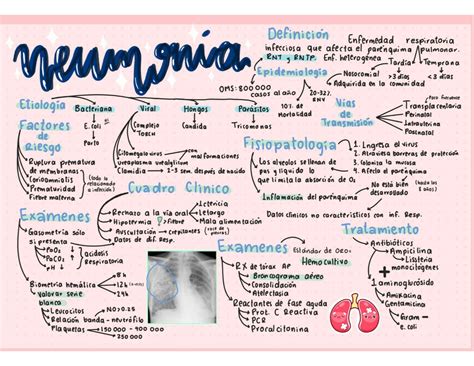 Neumonia
Definición
Enfermedad respiratoria
infecciosa que afecta el parénquima pulmonar.
RNT y RNTP. Enf. heterogénea
Tardía Temprana
>3 días <3 días
Epidemiología
Nosocomial
Adquirida en la comunidad
OMS: 800 000
casos al año
20-32%
RNT
10% de
mortalidad
Vías
de
Transmisión
Transplacentaria
Perinatal
Intrauterina
Postnatal
Etiología
Bacteriana
Viral
Hongos
Parásitos
E. coli
Parto
Complejo
TORCH
Candida
Tricomonas
Citomegalovirus
malformaciones
Ureaplasma urealyticum
Clamidia → 2-3 sem. después de nacido
Factores
de
Riesgo
Ruptura prematura
de membranas
Corioamnioitis
Prematuridad
Fiebre materna
(todo lo
relacionado a
infección)
Fisiopatología
Los alveolos se llenan de
pus y líquido lo
que limita la absorción de O₂
Inflamación del parénquima
1. Ingresa el virus
2. Atraviesa barreras de protección
3. Coloniza la
4. Afecta el parénquima
No está bien
desarrollado
(hasta los
8 años)
Datos clínicos no característicos con inf. Resp.
Cuadro Clínico
Rechazo a la vía oral
Ictericia
Letargo
Hipotermia > fiebre
Mala alimentación
Auscultación → crepitantes
Datos de dif. Resp.
Exámenes
Gasometría sólo
si presenta
↓PaO₂
↑PaCO₂
↓PH
acidosis
Respiratoria
Biometría hemática
8 h
12 h
24 h
Valorar serie
blanca
Leucocitos → NO > 0.25
Relación banda-neutrófilo
Plaquetas → 150 000 - 400 000
250 000 - 350 000
Exámenes
Estándar de oro:
Hemocultivo
RX de tórax AP
Broncograma aéreo
Consolidación
Atelectasia
Reactantes de fase aguda
Prot. C Reactiva
PCR
Procalcitonina
Tratamiento
Antibióticos
Ampicilina
Listeria
monocitógenes
+
1 aminoglucósido
Amikacina
Gentamicina
Gram -
e. coli